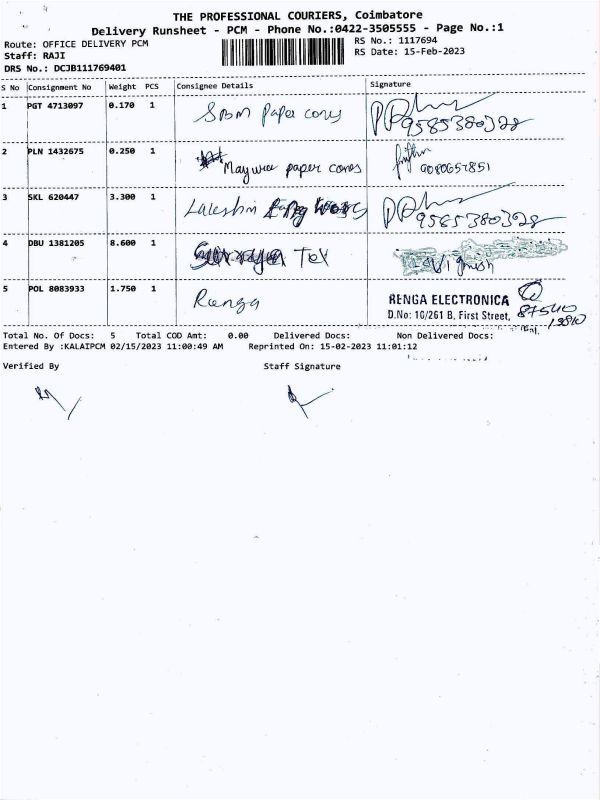 THE PROFESSIONAL COURIERS, Coimbatore
Delivery Runsheet - PCM - Phone No.:0422-3505555 - Page No.:1
Route: OFFICE DELIVERY PCM
RS No.: 1117694
Staff: RAJI
RS Date: 15-Feb-2023
DRS No.: DCJB111769401
S No Consignment No Weight PCS Consignee Details Signature
1 PGT 4713097 0.170 1 SBM Paper cones 9585380328
2 PLN 1432675 0.250 1 Maywee paper cones
3 SKL 620447 3.300 1 Lakeshmi Eng Works 9585380328
4 DBU 1381205 8.600 1 Tex
5 POL 8083933 1.750 1 Renga
RENGA ELECTRONICA
D.No: 10/261 B, First Street,
Total No. Of Docs: 5 Total COD Amt: 0.00 Delivered Docs: Non Delivered Docs:
Entered By :KALAIPCM 02/15/2023 11:00:49 AM Reprinted On: 15-02-2023 11:01:12
Verified By Staff Signature